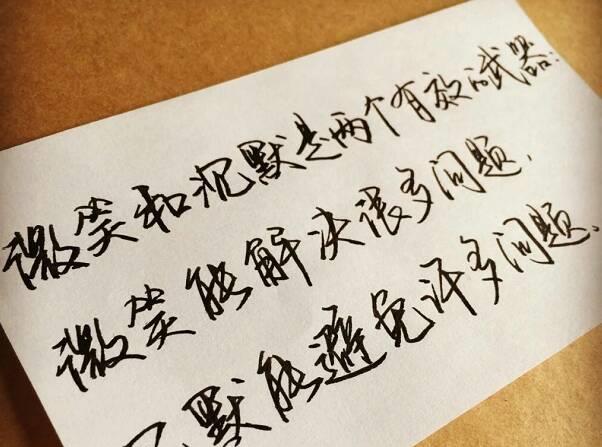 微笑和沉默是两个有效的武器:
微笑能解决很多问题.
沉默能避免许多问题.